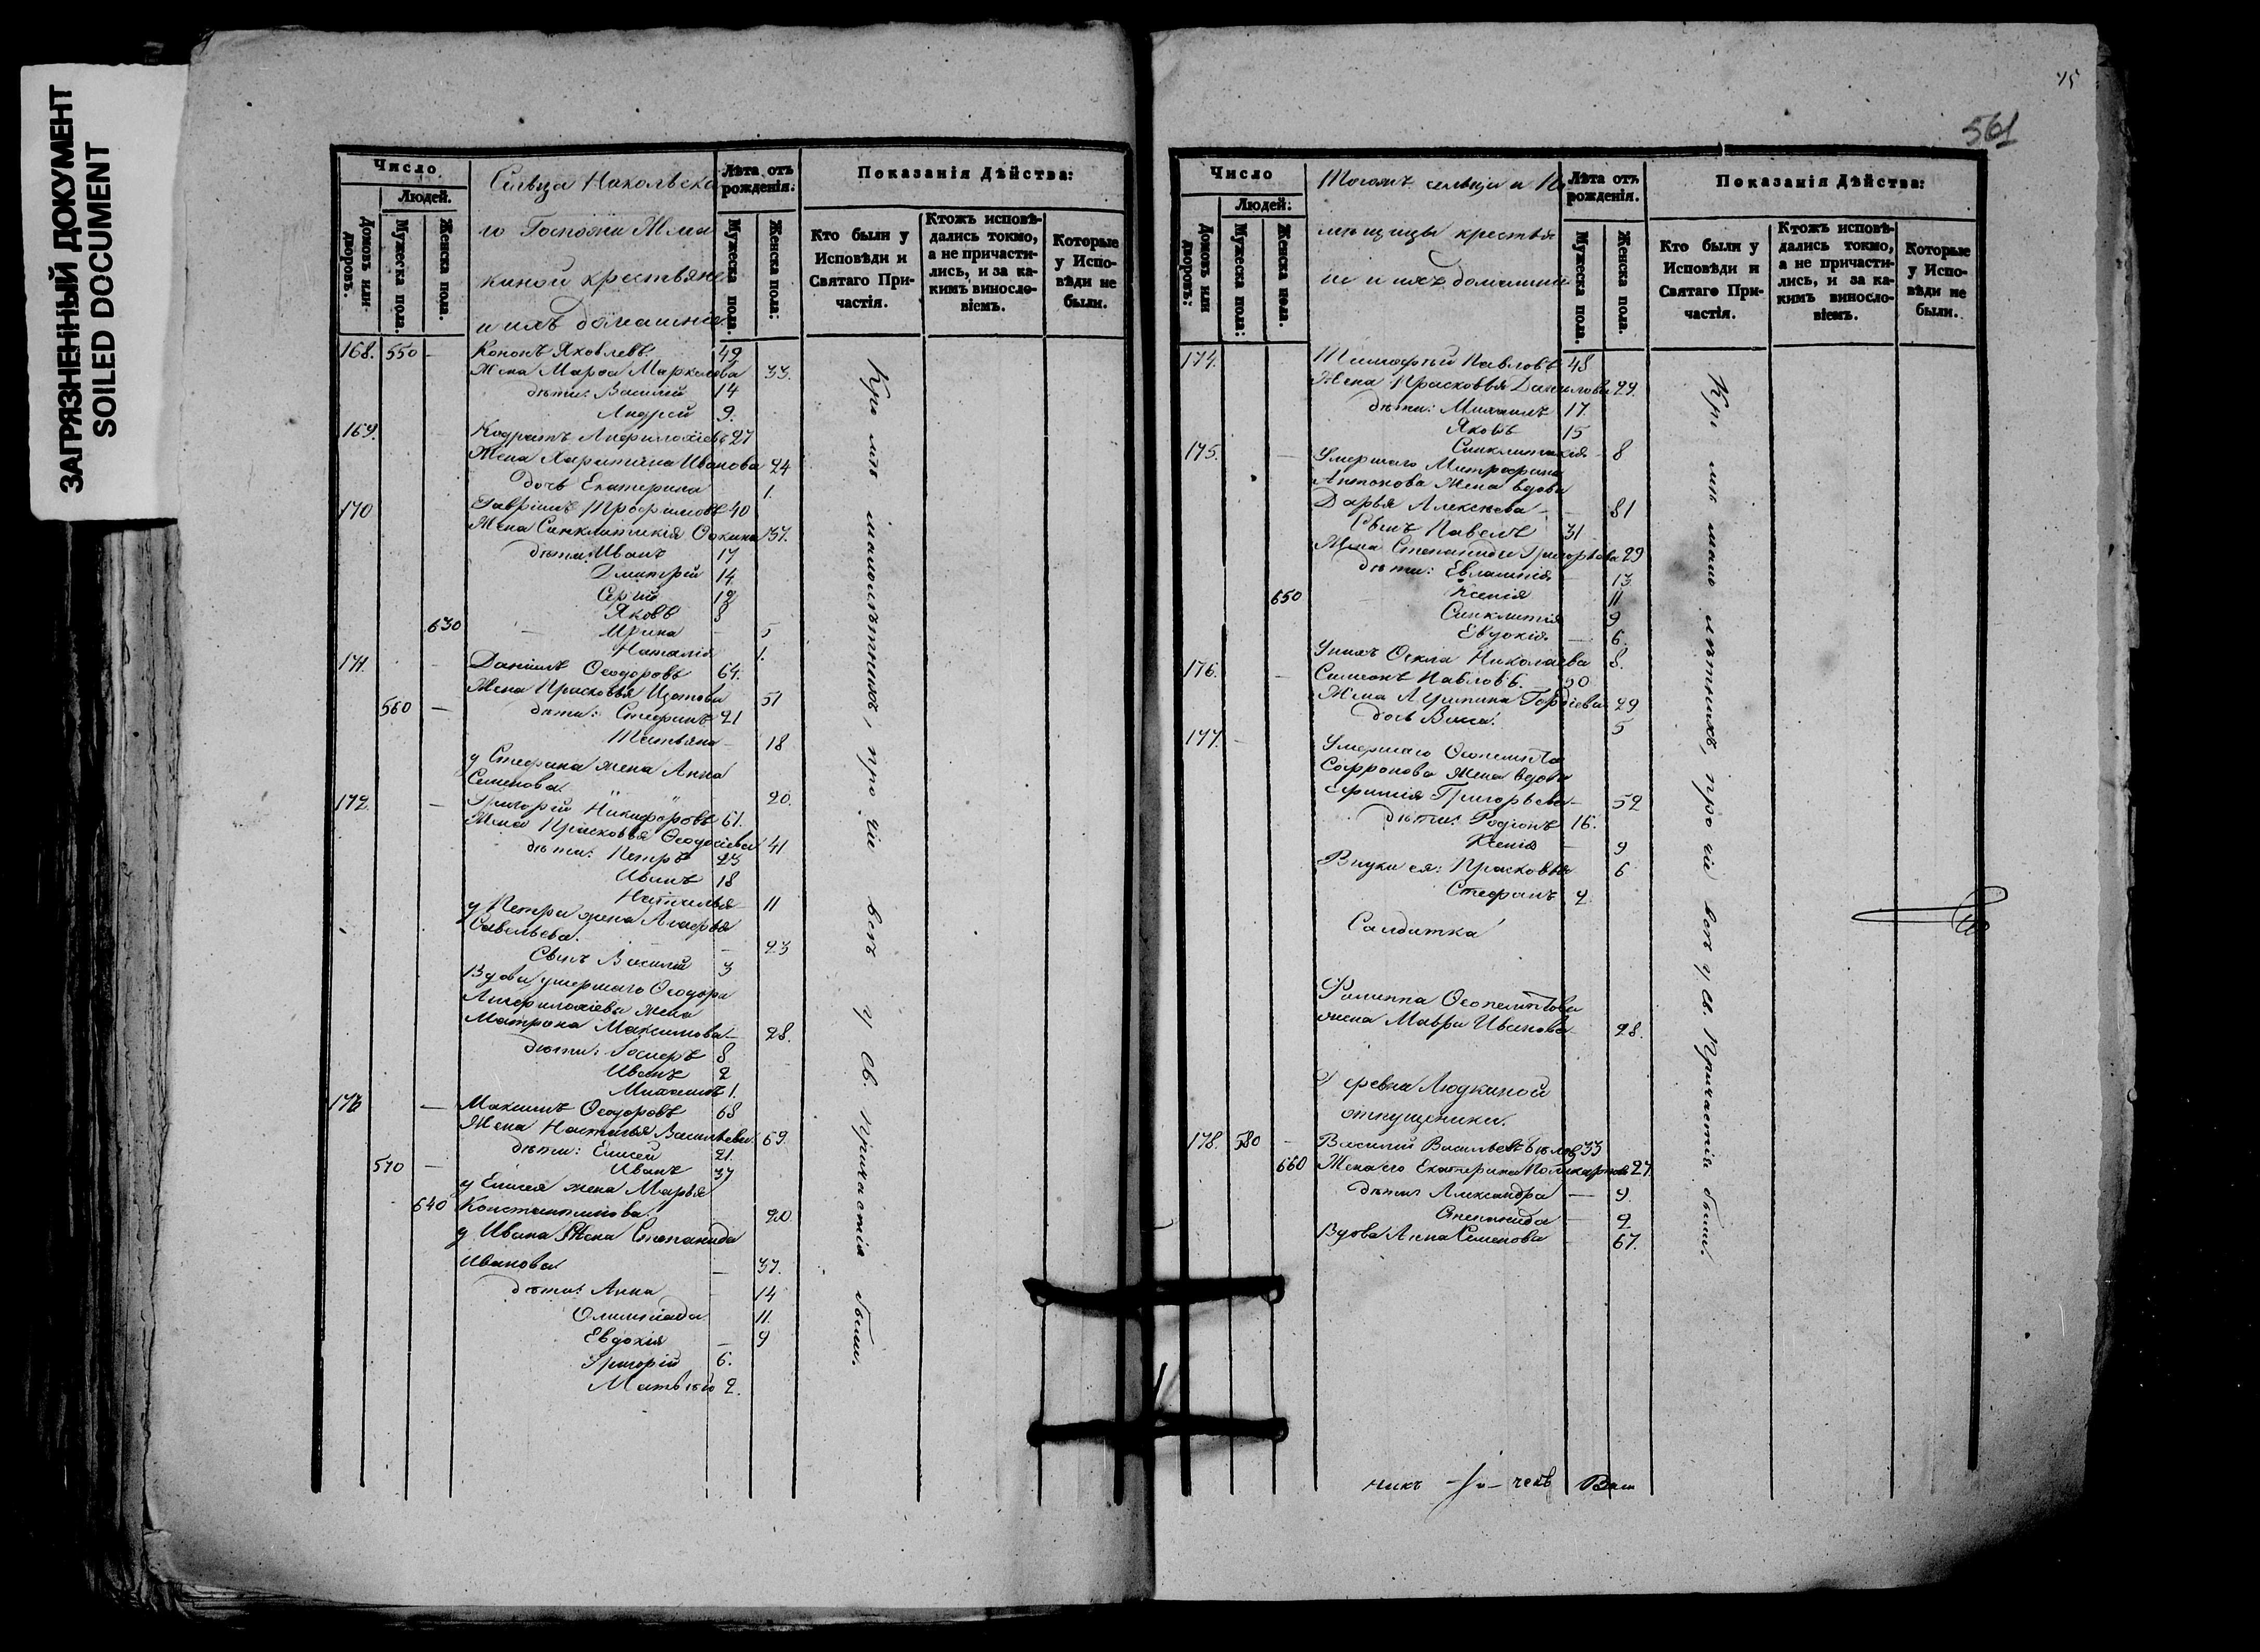 ЗАГРЯЗНЕННЫЙ ДОКУМЕНТ
SOILED DOCUMENT
Число
Людей.
Домовъ или дворовъ.
Мужеска пола.
Женска пола.
Сельца Никольска
го Госпожи Жма
киной крестьяне
и ихъ домашніе
Лѣта отъ рожденія.
Мужеска пола.
Женска пола:
Показанія Дѣйства:
Кто были у Исповѣди и Святаго Причастія.
Ктожъ исповѣдались токмо, а не причастились, и за какимъ винословіемъ.
Которые у Исповѣди не были.
168. 550 - Кононъ Яковлевъ 49
Жена Марѳа Маркелова 33.
дѣти: Василій 14
Андрей 9.
169. Кодратъ Анфилохіевъ 27
Жена Харитина Иванова 24
дочь Екатерина 1.
170 Гавріилъ Трофимовъ 40
Жена Синклитикія Фокина 37.
дѣти: Иванъ 17
Дмитрій 14
Сергій 12
Яковъ 8
630 - Ирина - 5
Наталія 1.
171. - Даніилъ Ѳеодоровъ 64.
Жена Прасковья Изотова 51
560 - дѣти: Стефанъ 21
Татьяна - 18
у Стефана жена Анна
Семенова. 20.
172. - Григорій Никифоровъ 61.
Жена Прасковья Ѳеодосіева 41
дѣти: Петръ 23
Иванъ 18
Наталья 11
у Петра жена
Савельева. - 23
Сынъ Василій 3
Вдова умершаго Ѳеодора
Анфилохіева жена
Матрона Максимова - 28.
дѣти: 8
Иванъ 2
Михаилъ 1.
173 - Максимъ Ѳеодоровъ 68
Жена Настасья Васильева 69.
дѣти: Елисей 21.
570 - Иванъ 37
у Елисея жена Марья
640 Константинова. 20
у Ивана Жена Степанида
Иванова. - 37.
дѣти: Анна - 14
Олимпіада 11.
Евдокія - 9
Григорій 6.
Матвѣй 2.
Кромѣ малолѣтнихъ, прочіе всѣ у Св. Причастія были.
75
561
Число
Людей.
Домовъ или дворовъ:
Мужеска пола:
Женска пола.
Тогожъ сельца и По
мѣщицы крестья
не и ихъ домашніе
Лѣта отъ рожденія.
Мужеска пола.
Женска пола.
Показанія Дѣйства:
Кто были у Исповѣди и Святаго Причастія.
Ктожъ исповѣдались токмо, а не причастились, и за какимъ винословіемъ.
Которые у Исповѣди не были.
174. Тимофей Павловъ 48
Жена Прасковья Данилова 29.
дѣти: Михаилъ 17.
Яковъ 15
Синклитикія 8
175. - Умершаго Митрофана
Антонова жена вдова
Дарья Алексѣева - 81
Сынъ Павелъ 31
Жена Степанида Григорьева 29
дѣти: Евлампія 13.
650 Ксенія 11
Синклитія 9
Евдокія - 6.
Ѳекла Николаева 8.
176. - Симеонъ Павловъ. 30
Жена Агрипина Гордѣева 29
дочь Васса. 5
177. - Умершаго Ѳеопемпта
Софронова жена вдова
Ефимія Григорьева - 52
дѣти: Родіонъ 16.
Ксенія - 9
Внуки ея: Прасковья 6
Стефанъ 2.
Салдатка
Филиппа Ѳеопемптова
жена Мавра Иванова - 28.
Деревни Людкиной
отпущеники.
178. 580 - Василій Васильевъ Бѣловъ 33
660 Жена его Екатерина Поликарпова 27.
дѣти: Александра - 9.
Степанида - 2
Вдова Анна Семенова - 67.
Кромѣ малолѣтнихъ, прочіе всѣ у Св. Причастія были.